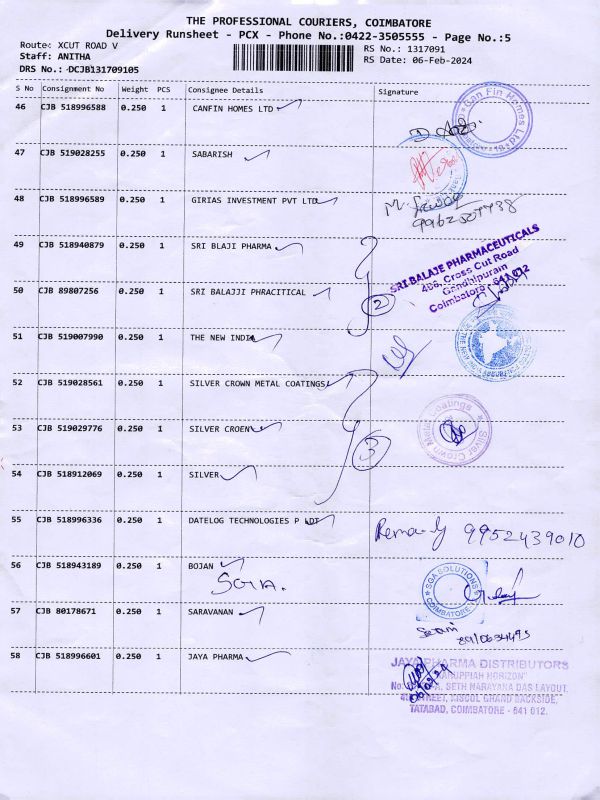 THE PROFESSIONAL COURIERS, COIMBATORE
Delivery Runsheet - PCX - Phone No.:0422-3505555 - Page No.:5
Route: XCUT ROAD V
RS No.: 1317091
Staff: ANITHA
RS Date: 06-Feb-2024
DRS No.: DCJB131709105
S No Consignment No Weight PCS Consignee Details Signature
46 CJB 518996588 0.250 1 CANFIN HOMES LTD
Can Fin Homes Ltd
47 CJB 519028255 0.250 1 SABARISH
48 CJB 518996589 0.250 1 GIRIAS INVESTMENT PVT LTD
49 CJB 518940879 0.250 1 SRI BLAJI PHARMA
SRI BALAJE PHARMACEUTICALS
486, Cross Cut Road
Gandhipuram
Coimbatore - 641 012
50 CJB 89807256 0.250 1 SRI BALAJJI PHRACITICAL
2
51 CJB 519007990 0.250 1 THE NEW INDIA
52 CJB 519028561 0.250 1 SILVER CROWN METAL COATINGS
53 CJB 519029776 0.250 1 SILVER CROEN
Silver Crown Metal Coatings
3
54 CJB 518912069 0.250 1 SILVER
55 CJB 518996336 0.250 1 DATELOG TECHNOLOGIES P LDT
9952439010
56 CJB 518943189 0.250 1 BOJAN
SGA SOLUTIONS
COIMBATORE
57 CJB 80178671 0.250 1 SARAVANAN
58 CJB 518996601 0.250 1 JAYA PHARMA
JAYA PHARMA DISTRIBUTORS
"KARUPPIAH HORIZON"
SETH NARAYANA DAS LAYOUT,
STREET, KISCOL GRAND BACKSIDE,
TATABAD, COIMBATORE - 641 012.